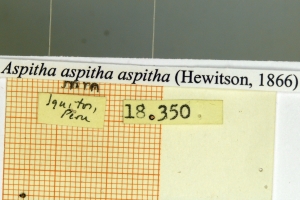 Aspitha aspitha aspitha (Hewitson, 1866)
mm
Iquitos,
Peru
18.350